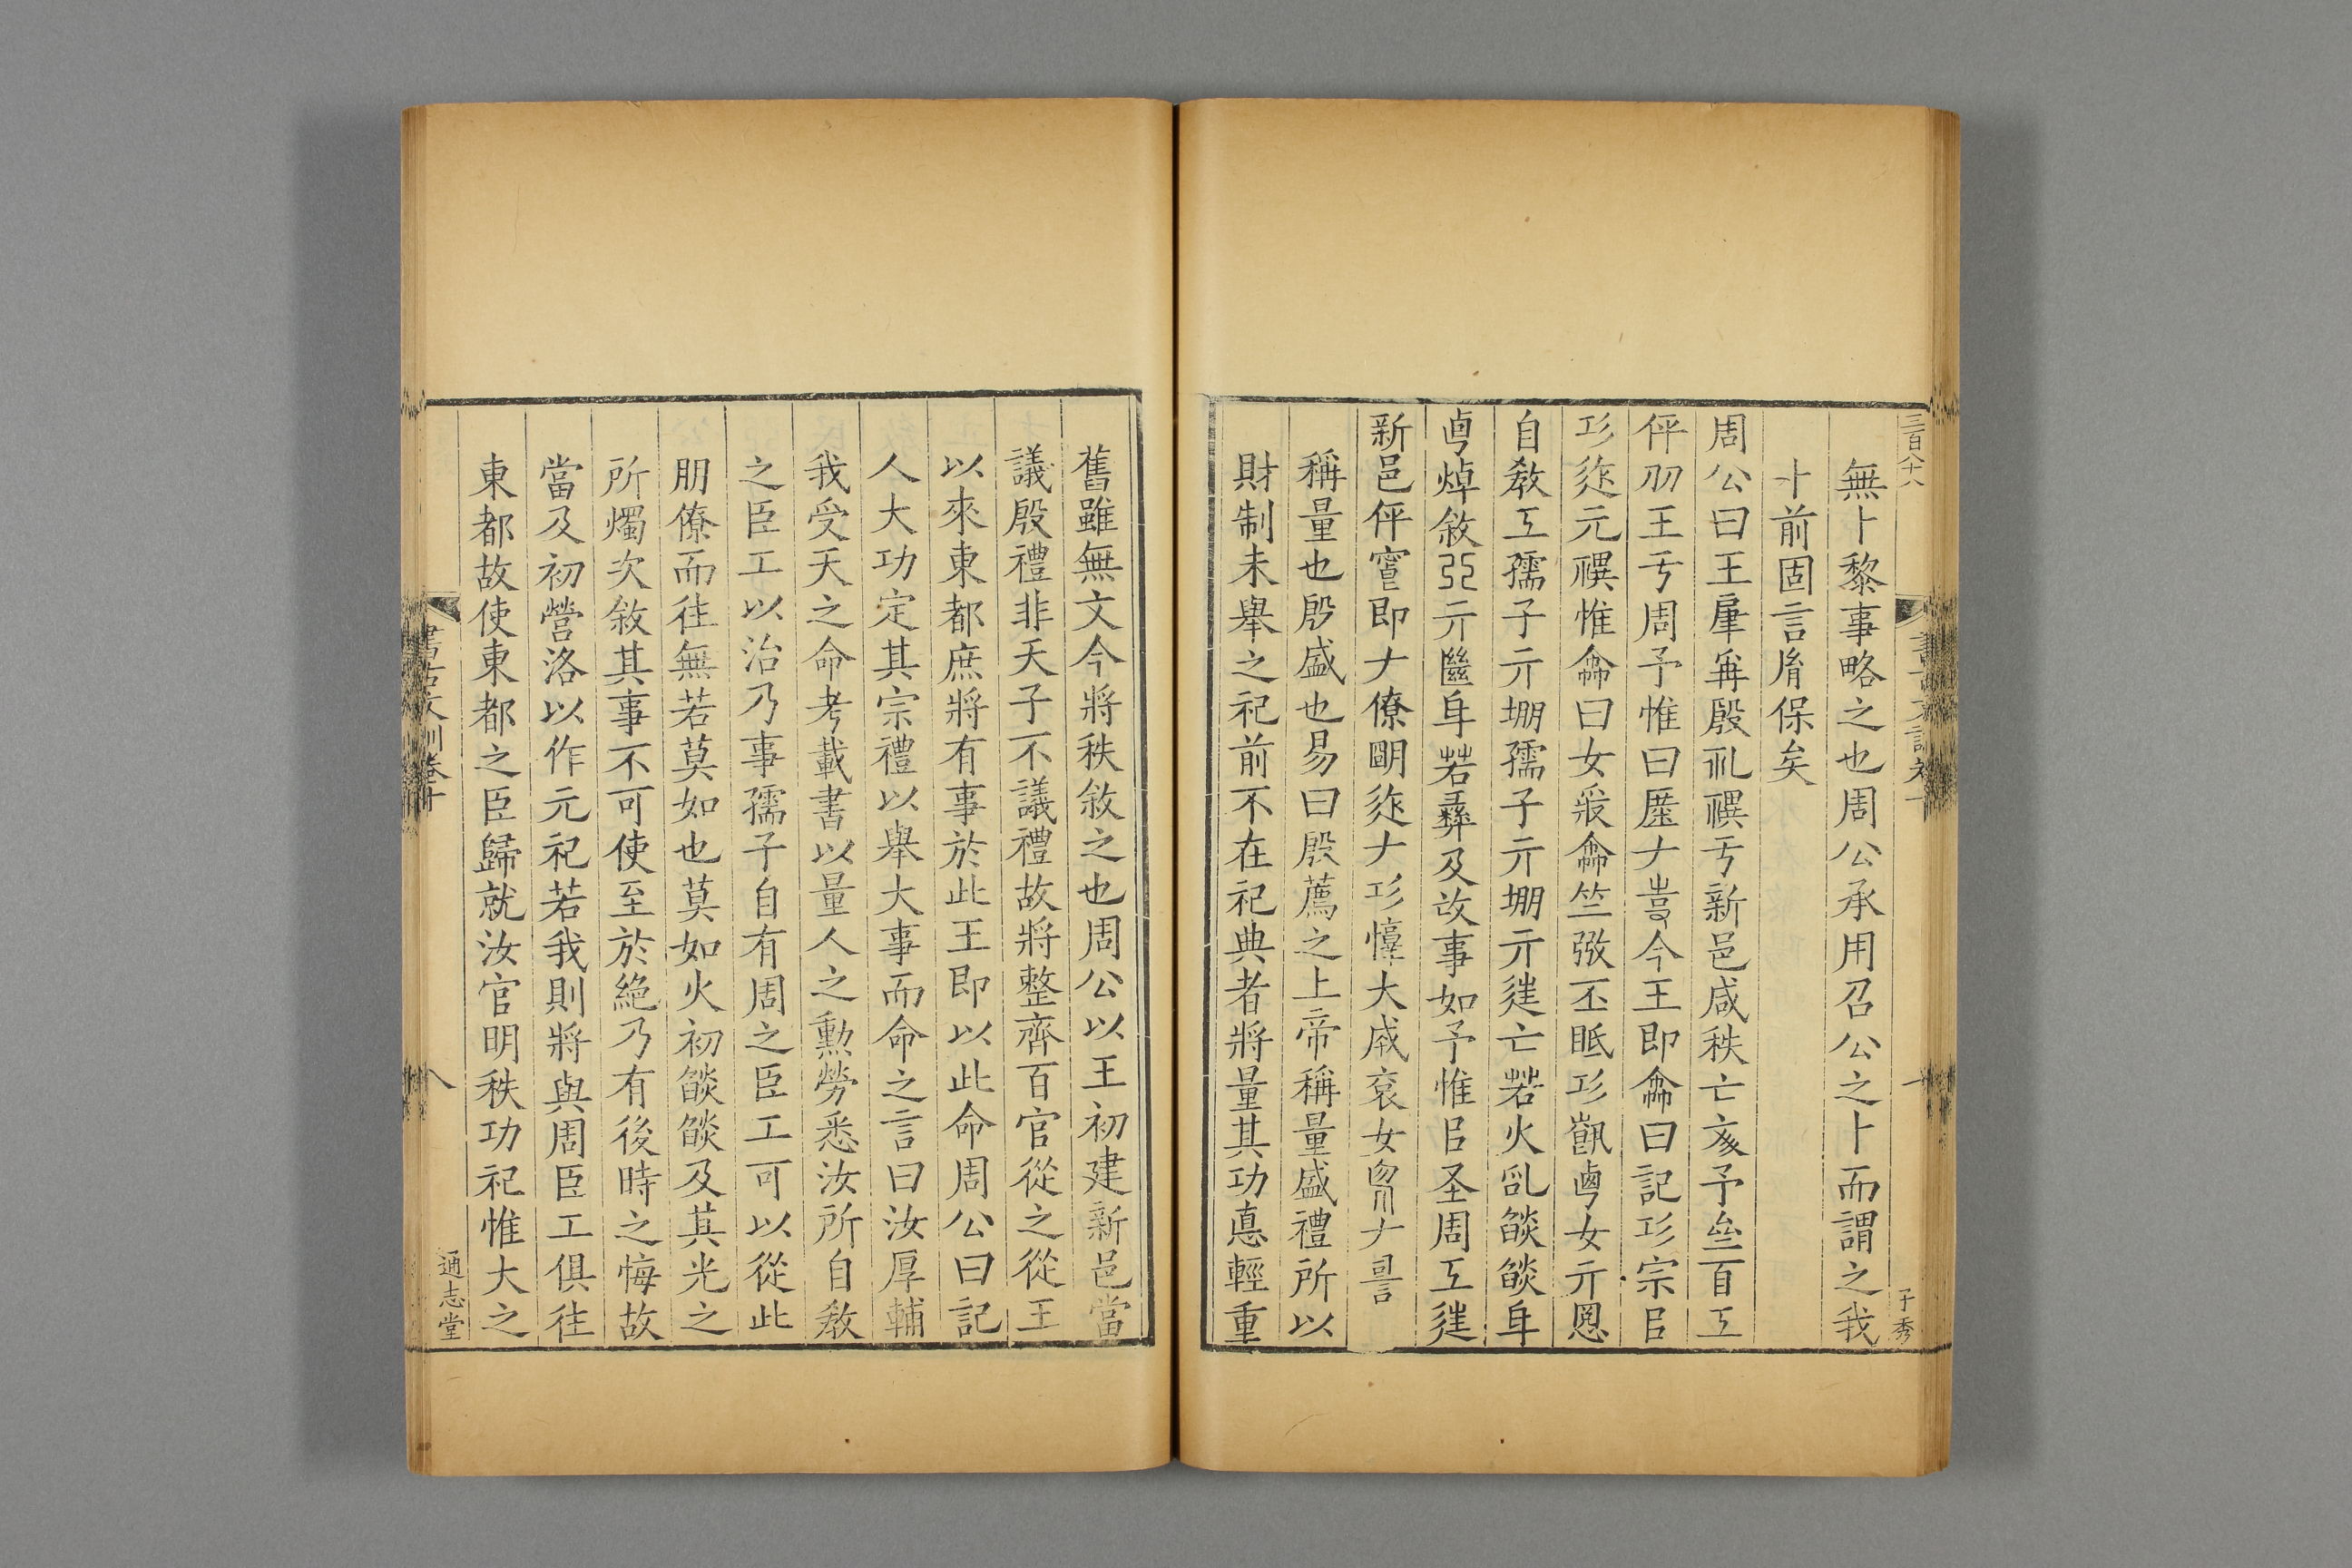 無卜黎事略之也周公承用召公之卜而謂之我
十前固言㣧保矣
周公曰王肈爯殷礼禩亐新邑咸秩亡彣予亝百工
伻刅王亐周予惟曰庢𠂇旹今王即龠曰記㓛宗㠯
㓛𨒫元禩惟龠曰女𠬪龠竺弼丕眡㓛𡴎𠧟女亓恖
自敎工孺子亓堋孺子亓堋亓𨓹亡若火乿燄燄𠂤
𠧟焯敘弜亓𢇍𠂤若彝及故事如予惟㠯圣周工𨓹
新邑伻䆿即𠂇僚朙𨒫𠂇㓛惇大成裒女𠂇
稱量也殷盛也易曰殷薦之上帝稱量盛禮所以
財制未舉之祀前不在祀典者將量其功悳輕重
舊雖無文今將秩敘之也周公以王初建新邑當
議殷禮非天子不議禮故將整齊百官從之從王
以來東都庶將有事於此王即以此命周公曰記
人大功定其宗禮以舉大事而命之言曰汝厚輔
我受天之命考載書以量人之勲勞悉汝所自教
之臣工以治乃事孺子自有周之臣工可以從此
朋僚而往無若莫如也莫如火初燄燄及其光之
所燭次敘其事不可使至於絶乃有後時之悔故
當及初營洛以作元祀若我則將與周臣工俱往
東都故使東都之臣歸就汝官明秩功祀惟大之
書古文訓卷十
八
通志堂
三百八十八
子秀